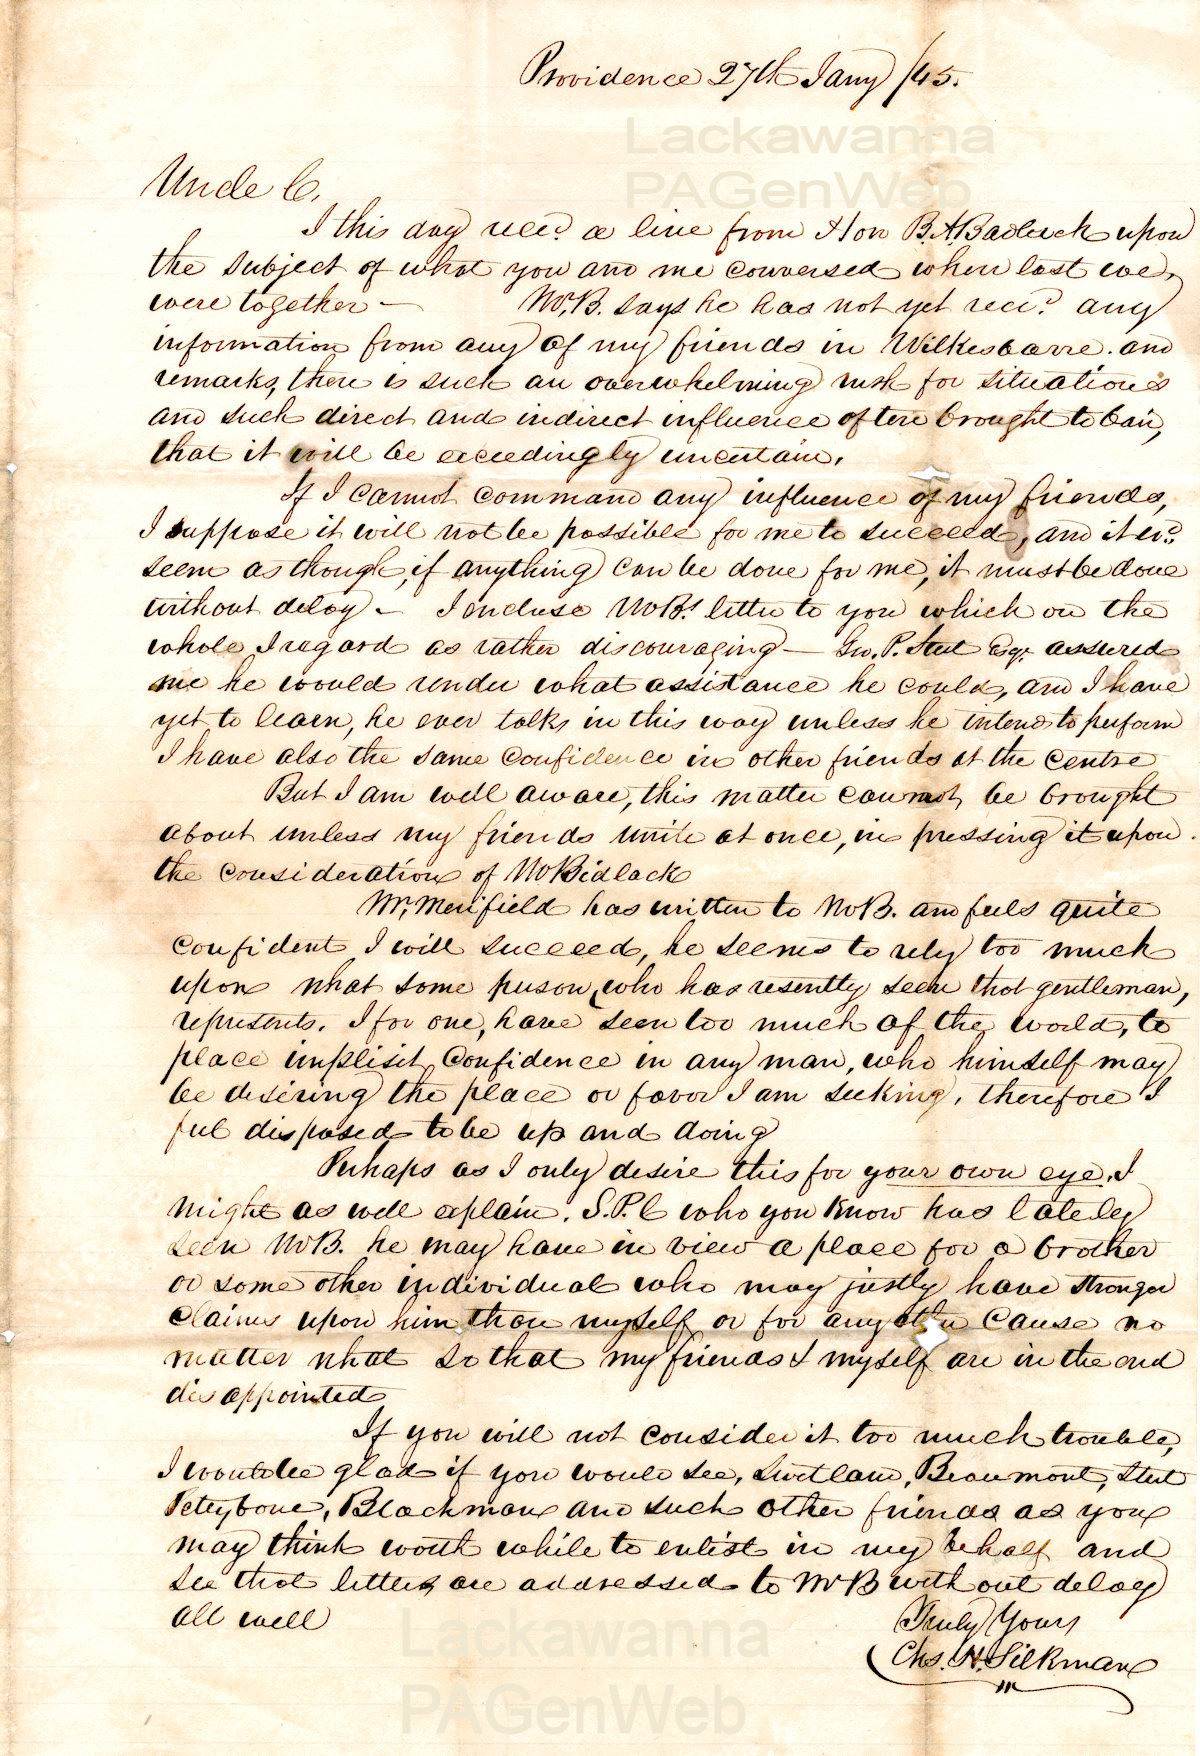 Providence 27th Jany /45.
Lackawanna
PAGenWeb
Uncle C,
I this day recd. a line from Hon B. A. Badlack upon
the subject of what you and me conversed when last we,
were together — Mr. B. says he has not yet recd. any
information from any of my friends in Wilkesbarre. and
remarks, there is such an overwhelming rush for situations
and such direct and indirect influence often brought to bair,
that it will be exceedingly uncertain.
If I cannot command any influence of my friends,
I suppose it will not be possible for me to succeed, and it wd.
seem as though, if anything can be done for me, it must be done
without delay — I encluse Mr Bs. letter to you which on the
whole I regard as rather discouraging — Geo. P. Steel Esqr. assured
me he would render what assistance he could, and I have
yet to learn, he ever talks in this way unless he intends to perform
I have also the same confidence in other friends at the centre
But I am well aware, this matter cannot, be brought
about unless my friends unite at once, in pressing it upon
the consideration of Mr Bidlack
Mr, Merifield has written to Mr B. and feels quite
confident I will succeed, he seems to rely too much
upon what some person, who has resently seen that gentleman,
represents. I for one, have seen too much of the world, to
place implisit confidence in any man, who himself may
be desiring the place or favor I am seeking, therefore I
feel disposed to be up and doing
Perhaps as I only desire this for your own eye, I
might as well explain. S. P. C who you know has lately
seen Mr B. he may have in view a place for a brother
or some other individual who may justly have stronger
claims upon him than myself or for any other cause no
matter what so that my friends & myself are in the end
disappointed
If you will not consider it too much trouble,
I would be glad if you would see, Swetland, Beaumont, Steel
Peteybone, Blackman and such other friends as you
may think worth while to enlist in my behalf and
see that letters are addressed to Mr B without delay
all well
Truly Yours
Chs. H. Silkman
Lackawanna
PAGenWeb